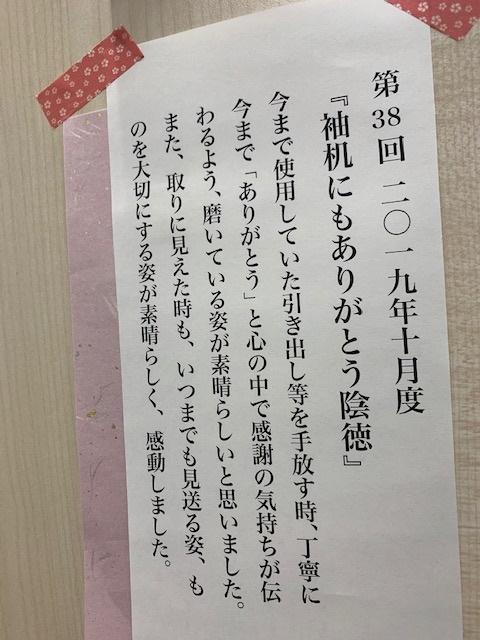 第38回 二〇一九年十月度
『袖机にもありがとう陰徳』
今まで使用していた引き出し等を手放す時、丁寧に
今まで「ありがとう」と心の中で感謝の気持ちが伝
わるよう、磨いている姿が素晴らしいと思いました。
また、取りに見えた時も、いつまでも見送る姿、も
のを大切にする姿が素晴らしく、感動しました。